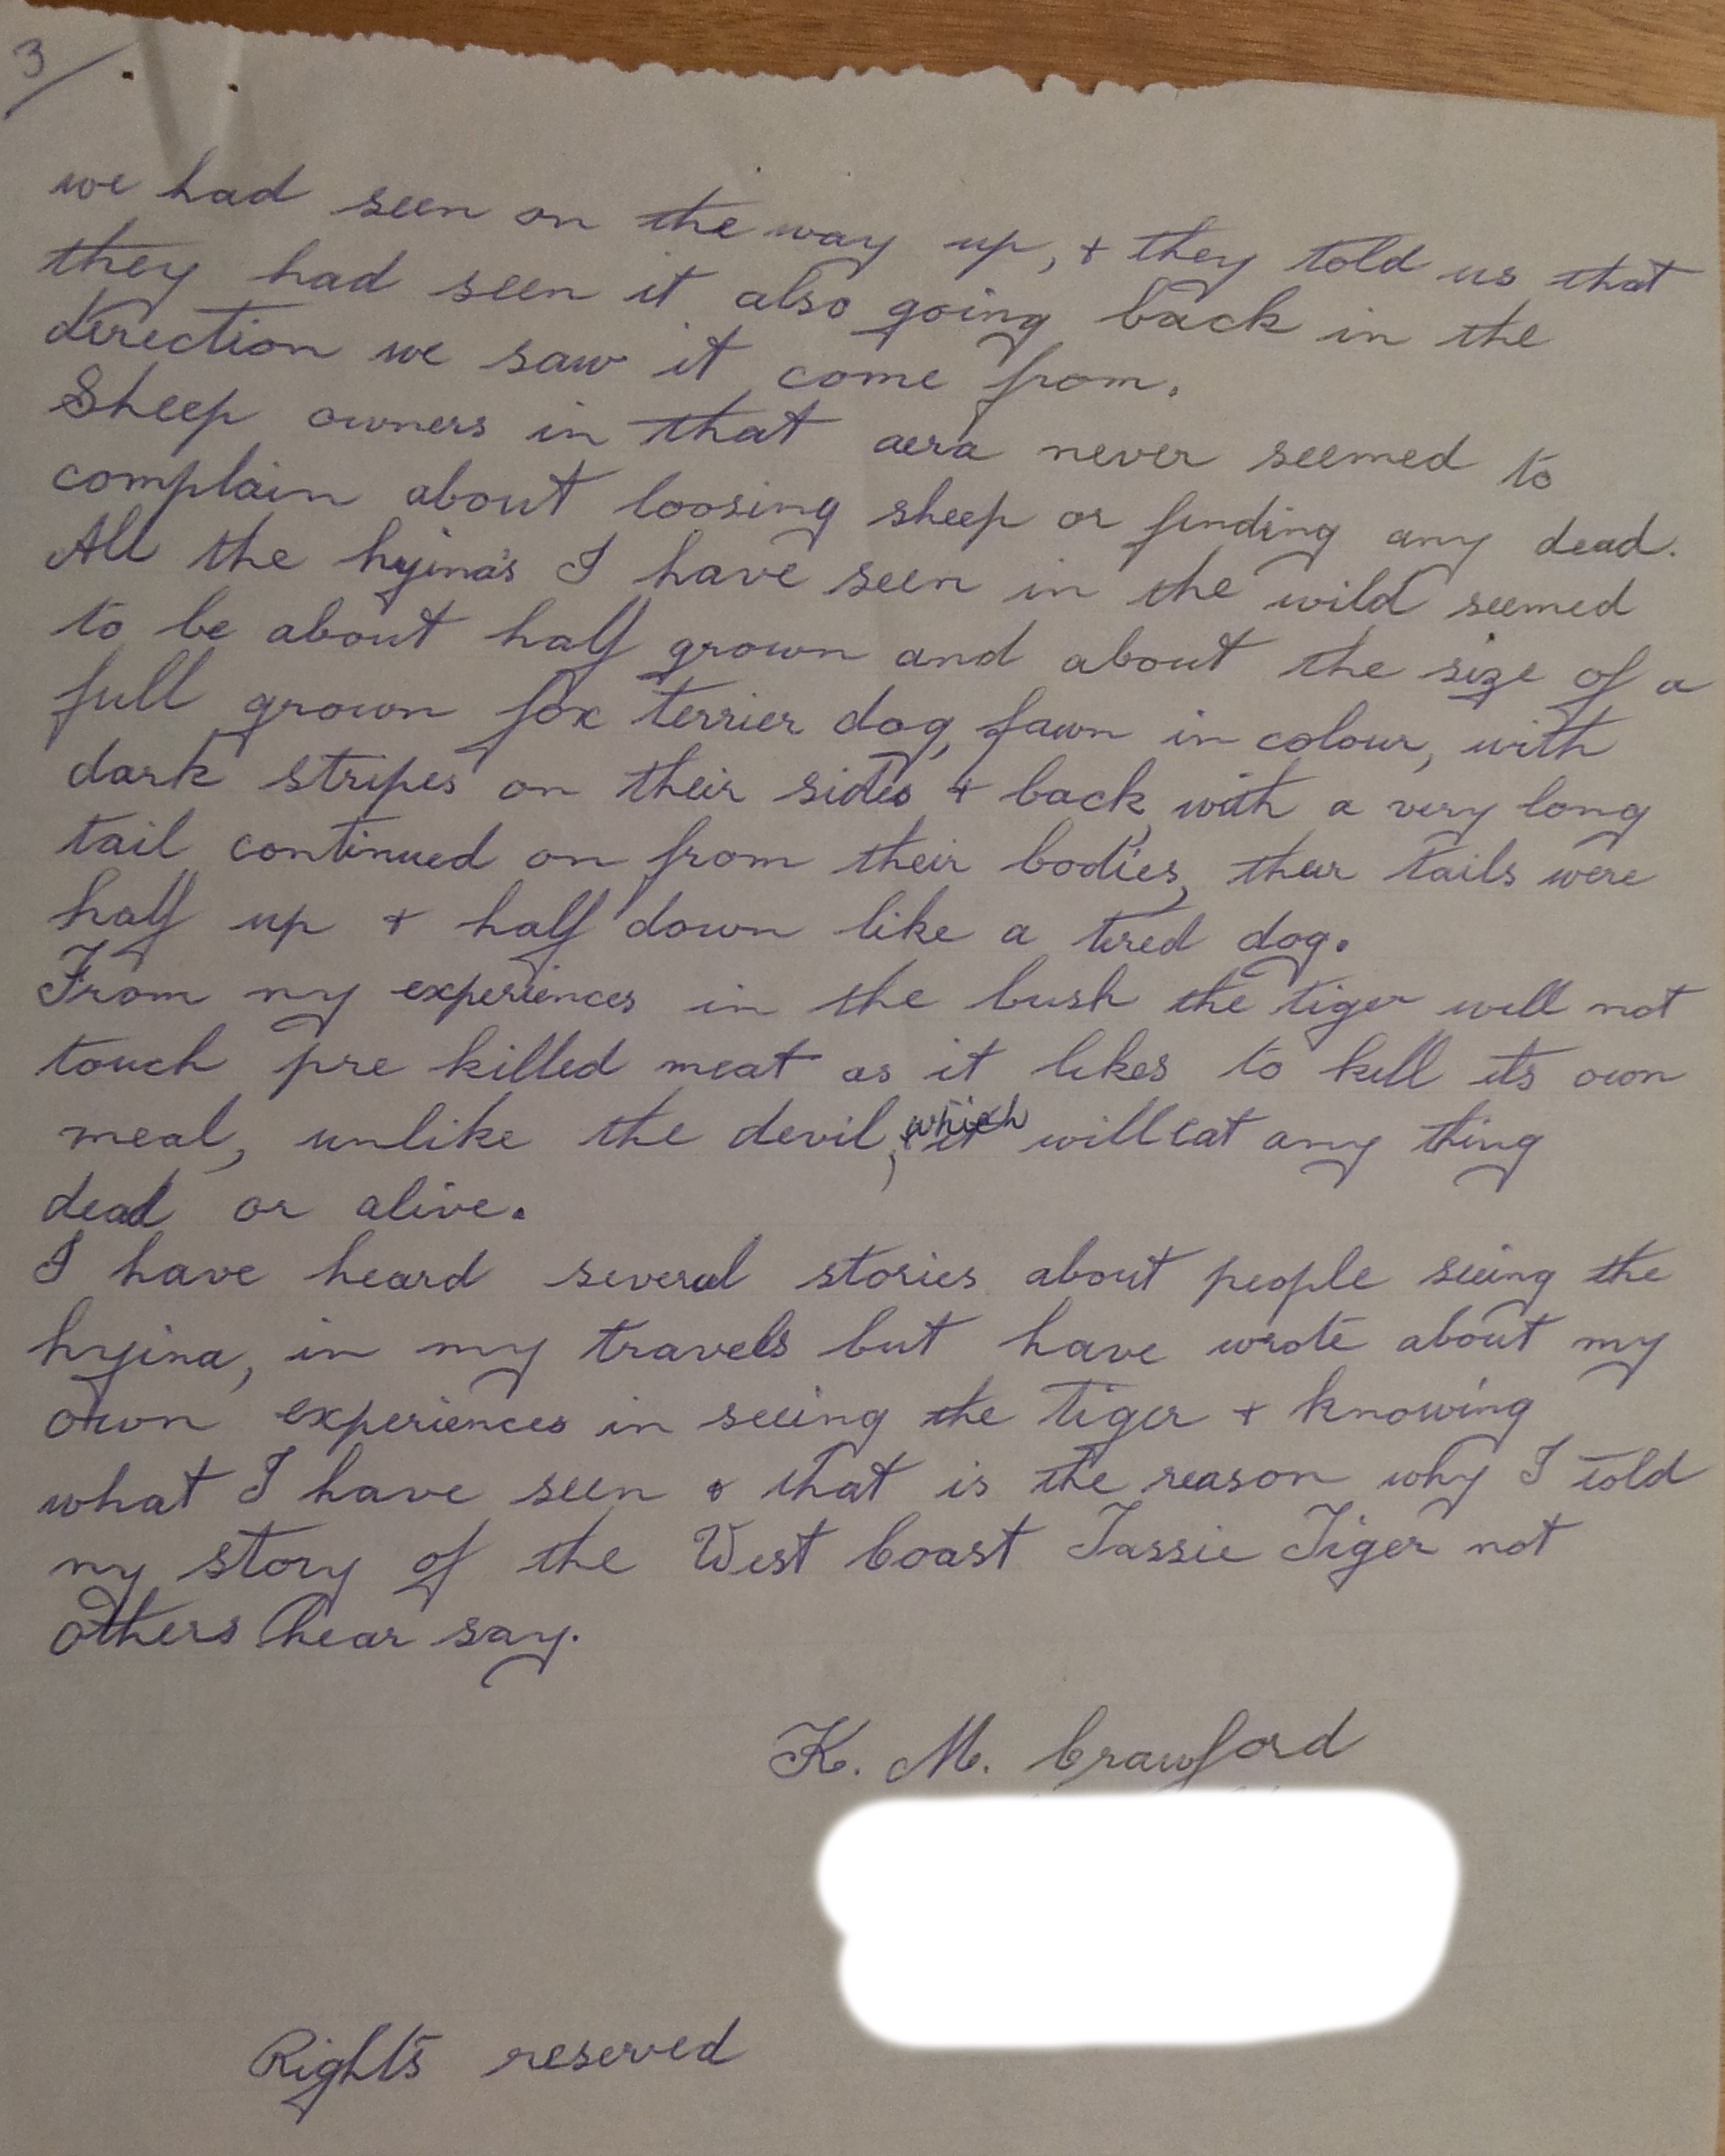 3/
we had seen on the way up, + they told us that
they had seen it also going back in the
direction we saw it come from.
Sheep owners in that aera never seemed to
complain about loosing sheep or finding any dead.
All the hyina's I have seen in the wild seemed
to be about half grown and about the size of a
full grown fox terrier dog, fawn in colour, with
dark stripes on their sides + back, with a very long
tail continued on from their bodies, their tails were
half up + half down like a tired dog.
From my experiences in the bush the tiger will not
touch pre killed meat as it likes to kill its own
meal, unlike the devil, which will eat any thing
dead or alive.
I have heard several stories about people seeing the
hyina, in my travels but have wrote about my
own experiences in seeing the Tiger + knowing
what I have seen + that is the reason why I told
my story of the West Coast Tassie Tiger not
others hear say.
K. M. Crawford
Rights reserved